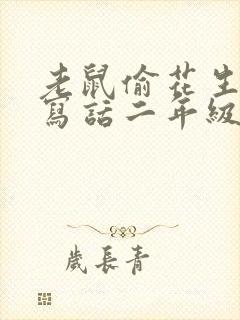 老鼠偷花生
寫話二年級
歲長青